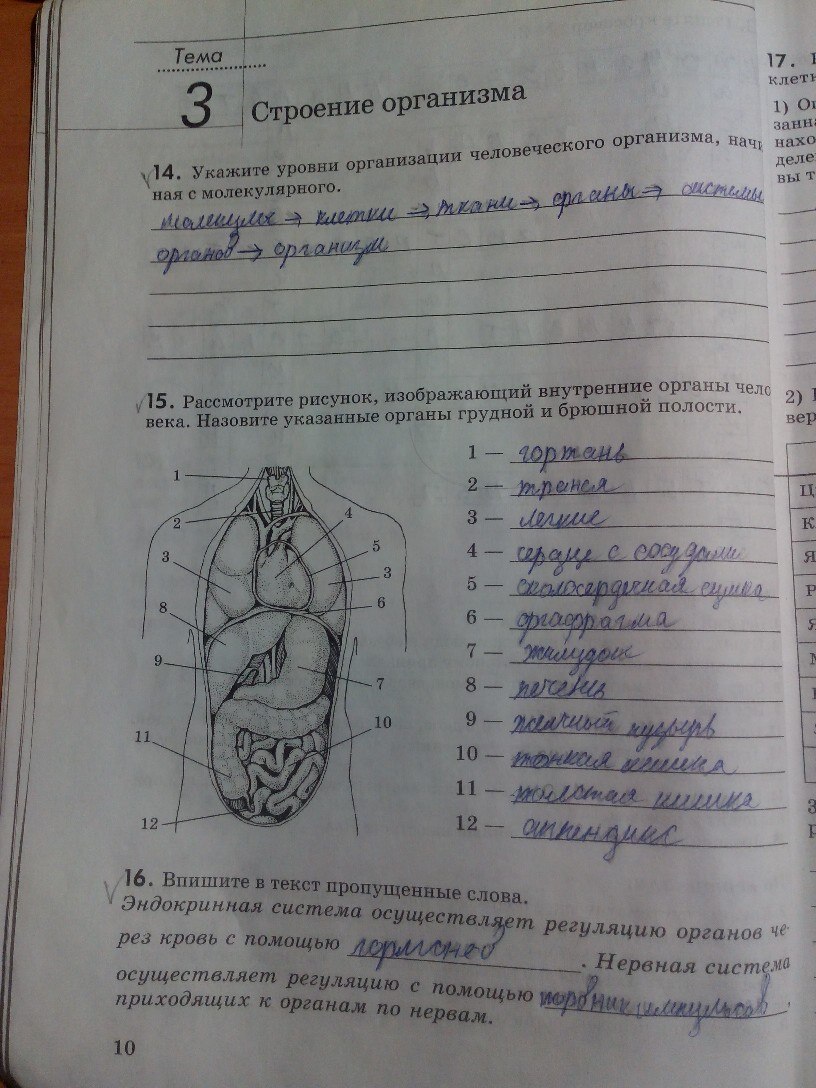 Тема
3 Строение организма
14. Укажите уровни организации человеческого организма, начи
ная с молекулярного.
молекулы → клетки → ткани → органы → системы
органов → организм
15. Рассмотрите рисунок, изображающий внутренние органы чело
века. Назовите указанные органы грудной и брюшной полости.
1
2
3
4
5
3
6
8
9
7
10
11
12
1 — гортань
2 — трахея
3 — легкие
4 — сердце с сосудами
5 — околосердечная сумка
6 — диафрагма
7 — желудок
8 — печень
9 — желчный пузырь
10 — тонкая кишка
11 — толстая кишка
12 — аппендикс
16. Впишите в текст пропущенные слова.
Эндокринная система осуществляет регуляцию органов че
рез кровь с помощью гормонов . Нервная система
осуществляет регуляцию с помощью импульсов ,
приходящих к органам по нервам.
10
17.
клетк
1) Оп
занна
нахо
деле
вы т
2)
вер
Ц
К
Я
Р
Я